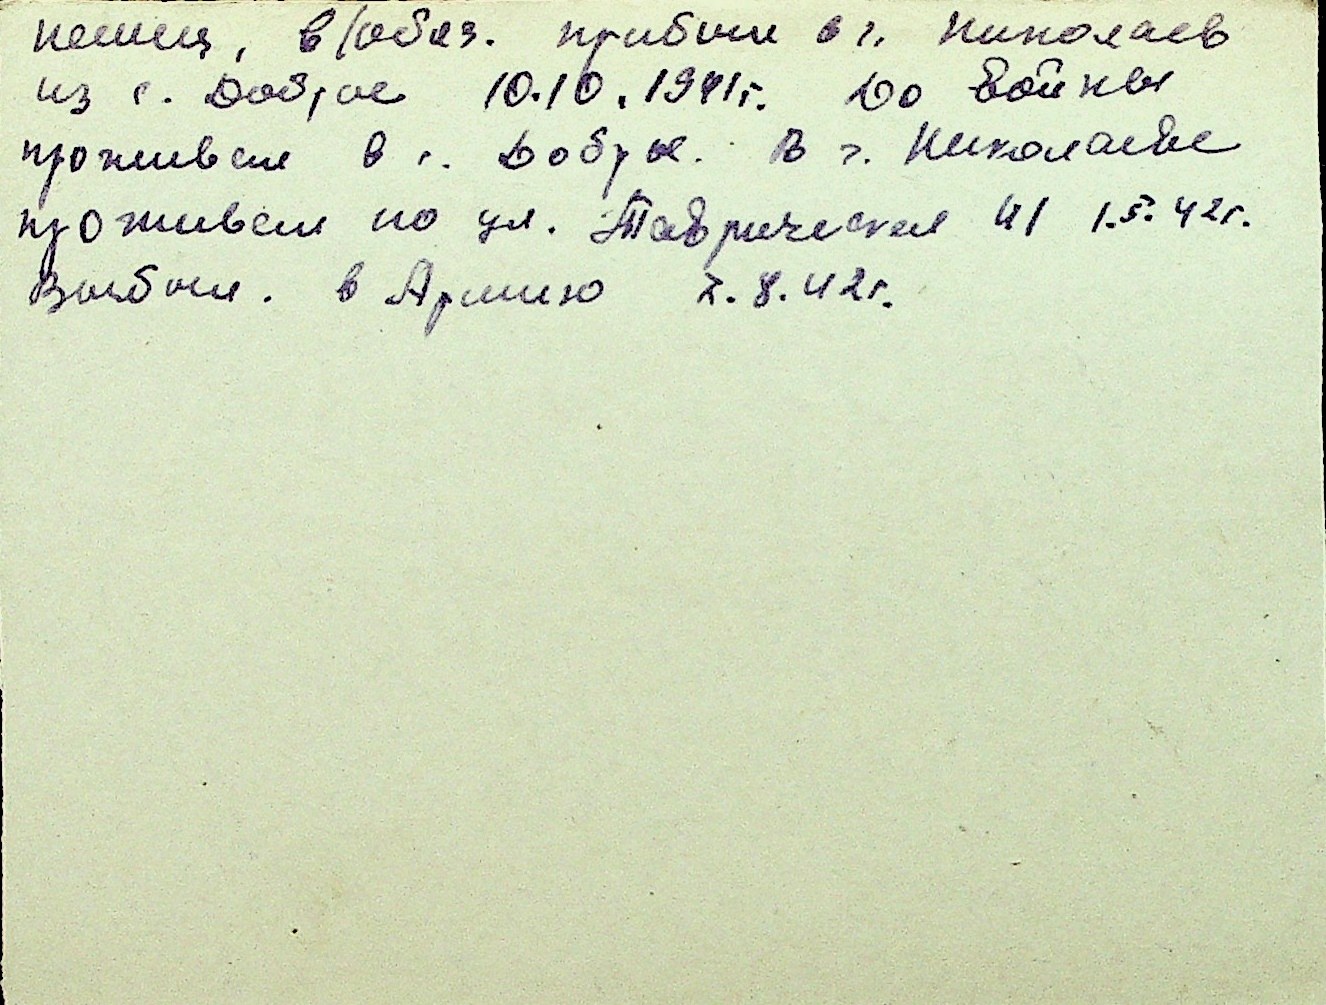 немец, в/обяз. прибыл в г. Николаев
из с. Доброе 10.10.1941г. До войны
проживал в с. Доброе. В г. Николаеве
проживал по ул. Таврическая 41 1.5.42г.
Выбыл. в Армию 7.8.42г.